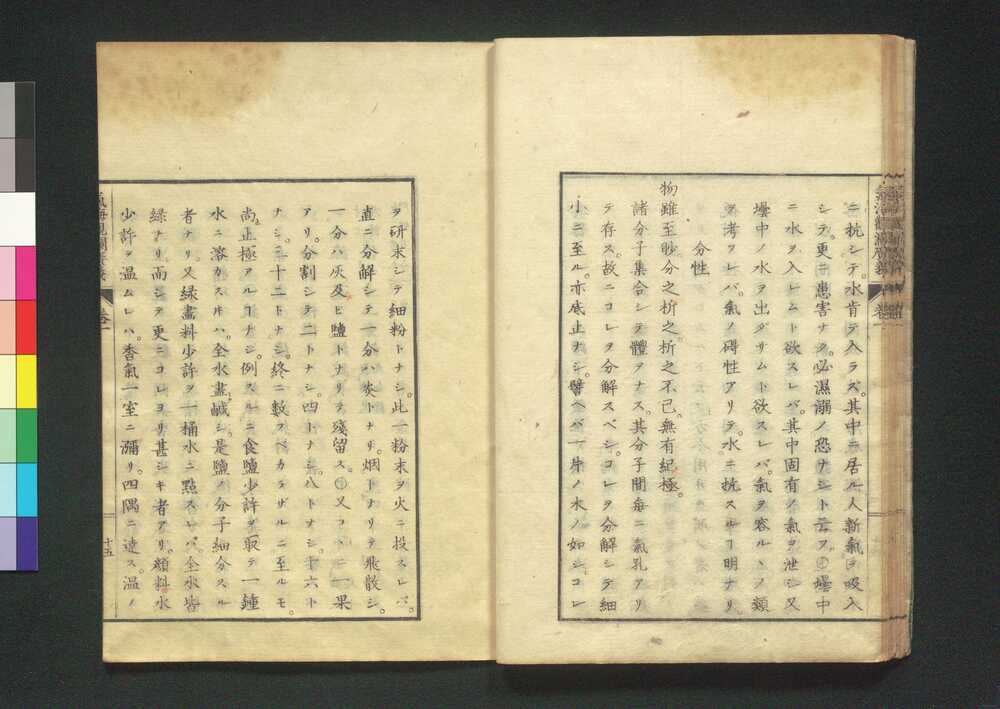 ニ抗シテ。水肯テ入ラズ。其中ニ居ル人新氣ヲ吸入
シテ。更ニ患害ナク。必濕漏ノ恐ナシト云フ。○壜中
ニ水ヲ入レムト欲スレバ。其中固有ノ氣ヲ泄シ又
壜中ノ水ヲ出ダサムト欲スレバ。氣ヲ容ルヽノ類
ヲ考フレバ。氣ノ碍性アリテ。水ニ抗スルヿ明ナリ
分性
物雖至眇。分之析之。析之不已。無有紀極。
諸分子集合シテ體ヲナス。其分子間每ニ氣孔アリ
テ存ス。故ニコレヲ分解スベシ。コレヲ分解シテ細
小ニ至ル。亦底止ナシ。譬ヘバ一片ノ木ノ如シ。コレ
ヲ研末シテ細粉トナシ。此一粉末ヲ火ニ投スレバ。
直ニ分解シテ一分ハ炎トナリ。烟トナリテ飛散シ。
一分ハ灰及ビ鹽トナリテ殘留ス。○又コヽニ一果
アリ。分割シテ二トナシ。四トナシ。八トナシ。十六ト
ナシ。三十二トナシ。終ニ數スベカラザルニ至ルモ。
尚止極アルヿナシ。例スルニ食鹽少許ヲ取テ一鍾
水ニ溶カスㇳキハ。全水盡鹹シ。是鹽ノ分子細分スル
者ナリ。又綠畫料少許ヲ一桶水ニ點スレバ。全水皆
綠ナリ。而シテ更ニコレヨリ甚シキ者アリ。顔料水
少許ヲ溫ムレハ。香氣一室ニ瀰リ。四隅ニ達ス。溫ノ
卷一
十五